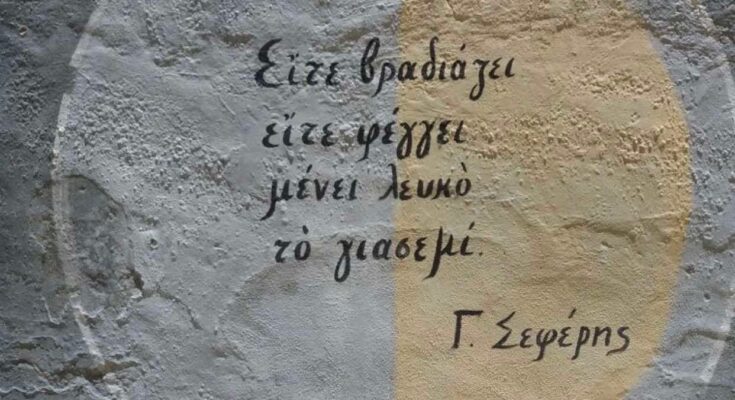 Εἴτε βραδιάζει
εἴτε φέγγει
μένει λευκὸ
τὸ γιασεμί.
Γ. Σεφέρης